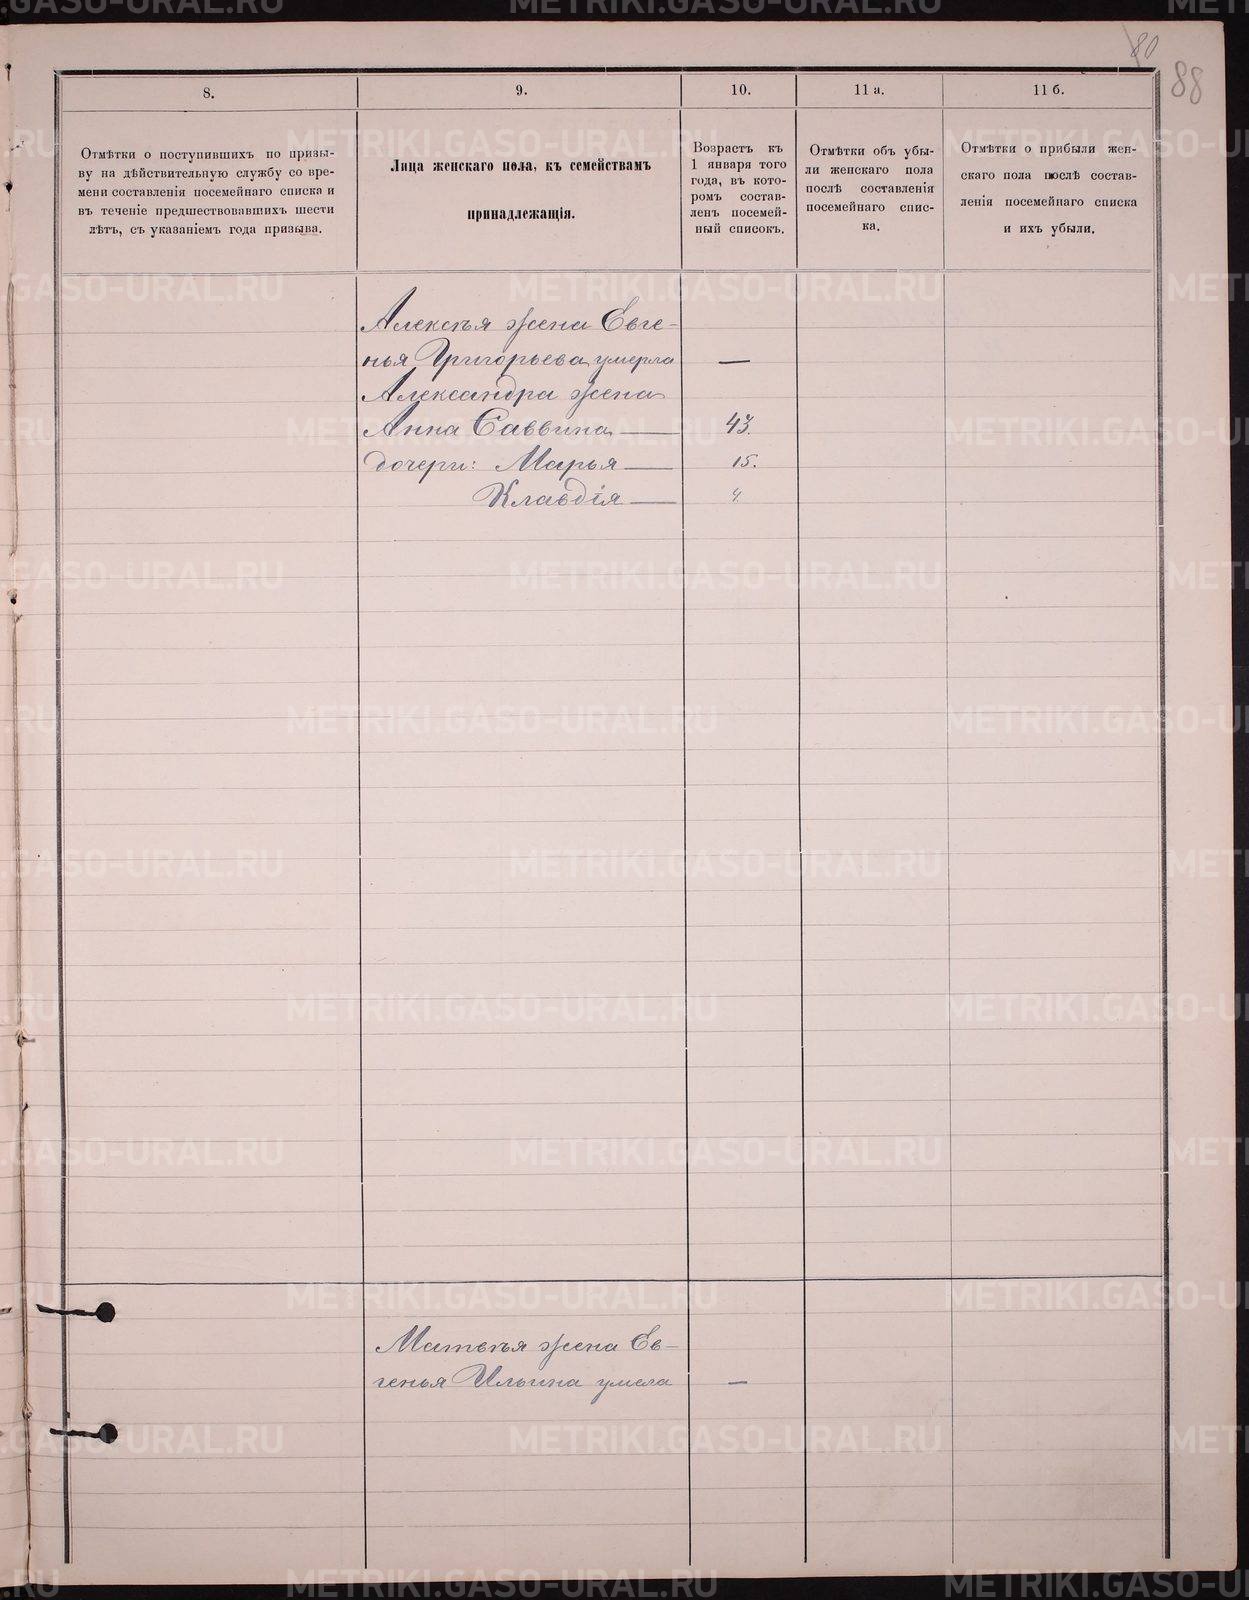 80
88
8.
9.
10.
11 а.
11 б.
Отмѣтки о поступившихъ по призы-
ву на дѣйствительную службу со вре-
мени составленія посемейнаго списка и
въ теченіе предшествовавшихъ шести
лѣтъ, съ указаніемъ года призыва.
Лица женскаго пола, къ семействамъ
принадлежащія.
Возрастъ къ
1 января того
года, въ кото-
ромъ состав-
ленъ посемей-
ный списокъ.
Отмѣтки объ убы-
ли женскаго пола
послѣ составленія
посемейнаго спис-
ка.
Отмѣтки о прибыли жен-
скаго пола послѣ состав-
ленія посемейнаго списка
и ихъ убыли.
Алексѣя жена Евге-
нья Григорьева умерла —
Александра жена
Анна Саввина — 43.
дочери: Марья — 15.
Клавдія — 4.
Матвѣя жена Ев-
генья Ильина умела —
METRIKI.GASO-URAL.RU